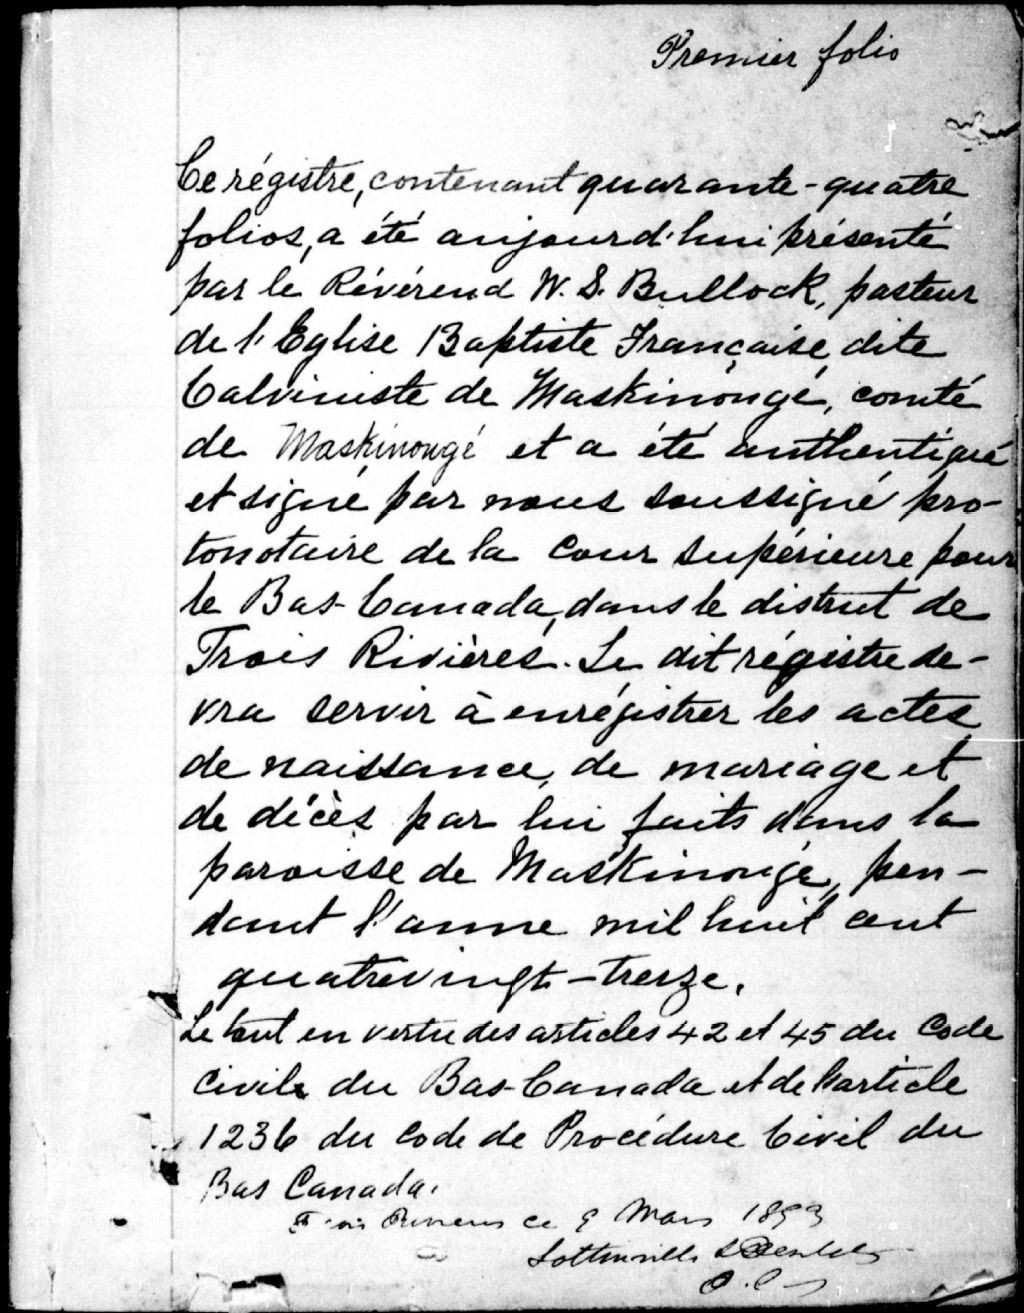 Premier folio
Ce régistre, contenant quarante-quatre
folios, a été aujourd'hui présenté
par le Révérend W. S. Bullock, pasteur
de l'Eglise Baptiste Française, dite
Calviniste de Maskinongé, comté
de Maskinongé et a été authentiqué
et signé par nous soussigné pro-
tonotaire de la Cour Supérieure pour
le Bas-Canada, dans le district de
Trois Rivières. Le dit régistre de-
vra servir à enrégistrer les actes
de naissance, de mariage et
de décès par lui faits dans la
paroisse de Maskinongé, pen-
dant l'anne mil huit cent
quatrevingt-treize.
Le tout en vertu des articles 42 et 45 du Code
Civil du Bas-Canada et de l'article
1236 du Code de Procédure Civil du
Bas Canada.
Trois Rivieres ce 9 Mars 1893